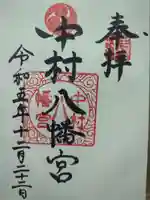 奉拝
中村八幡宮
令和五年十二月二十三日